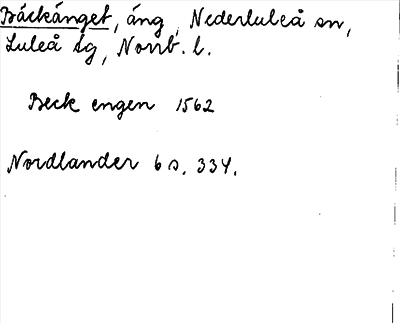 Bäckänget, äng, Nederluleå sn,
Luleå tg, Norrb. l.
Beck engen 1562
Nordlander 6 s. 334.